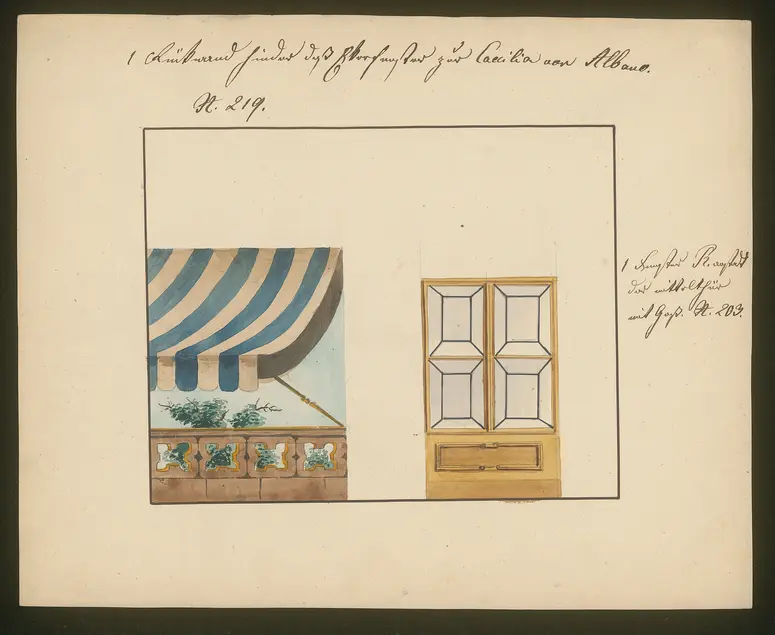 1 Rückwand hinder daß Thorfenster zur Caecilia von Albano.
N. 219.
1 Fenster
der mittelthür
mit Gaß. N. 203.